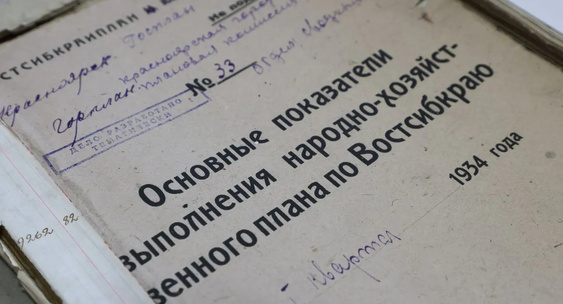 СТСИБКРАЙПЛАН
Не по
Красноярск Госплан
Красноярской горо
горплан-плановая комиссия
№ 33
Отдел сводн
ДЕЛО РАЗРАБОТАНО
ТЕМАТИЧЕСКИ
Основные показатели
выполнения народно-хозяйст-
венного плана по Востсибкраю
1934 года
квартал
9262 82